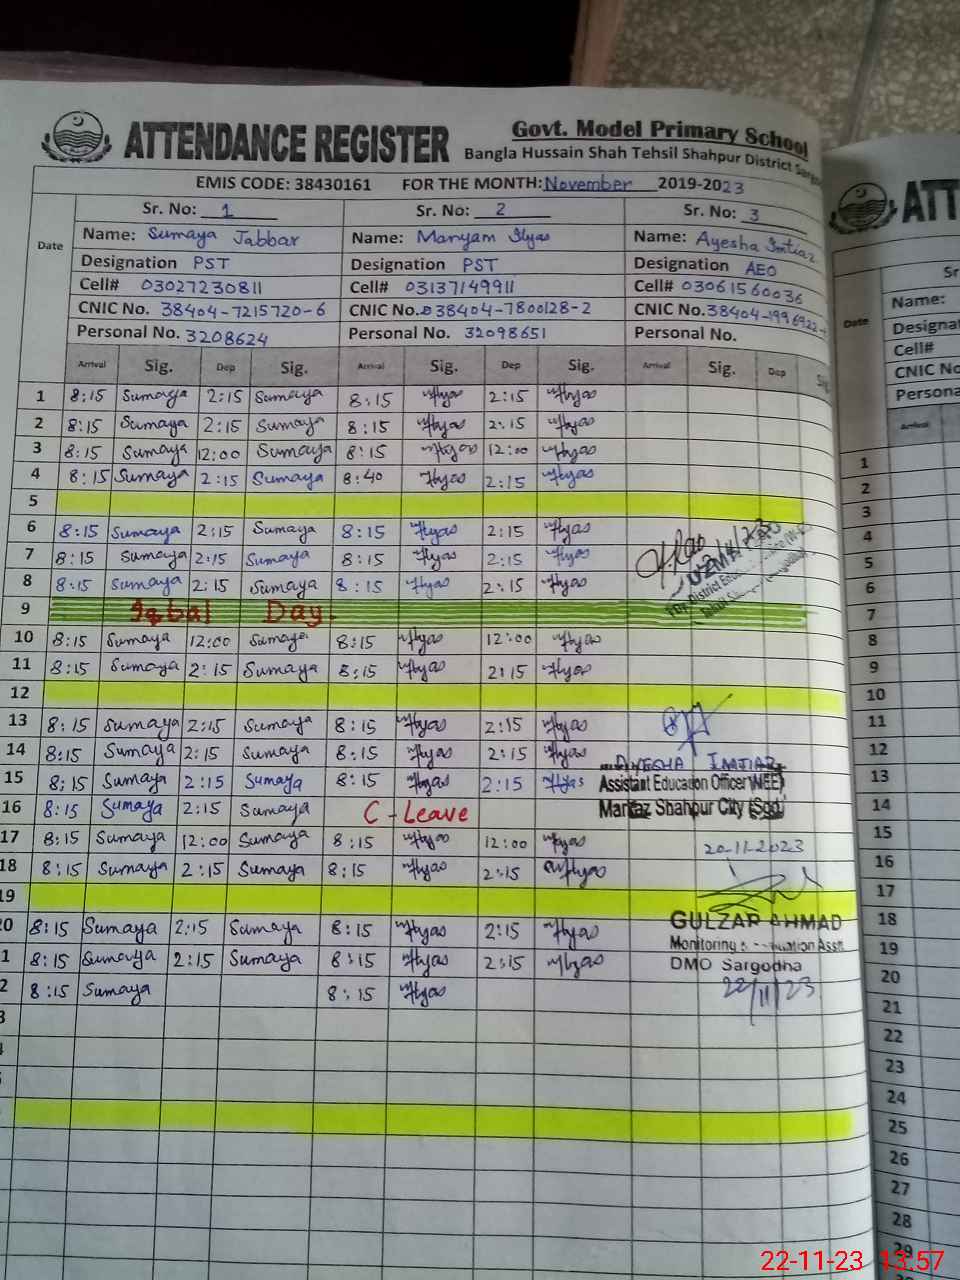 ATTENDANCE REGISTER
Govt. Model Primary School
Bangla Hussain Shah Tehsil Shahpur District
EMIS CODE: 38430161 FOR THE MONTH: November 2019-2023
Date Sr. No: 1 Sr. No: 2 Sr. No: 3
Name: Sumaya Jabbar Name: Maryam Ilyas Name: Ayesha Imtiaz
Designation PST Designation PST Designation AEO
Cell# 03027230811 Cell# 03137149911 Cell# 03061560036
CNIC No. 38404-7215720-6 CNIC No. 38404-7800128-2 CNIC No. 38404-1996922-
Personal No. 3208624 Personal No. 32098651 Personal No.
Arrival Sig. Dep Sig. Arrival Sig. Dep Sig. Arrival Sig. Dep Sig
1 8:15 Sumaya 2:15 Sumaya 8:15 Ilyas 2:15 Ilyas
2 8:15 Sumaya 2:15 Sumaya 8:15 Ilyas 2:15 Ilyas
3 8:15 Sumaya 12:00 Sumaya 8:15 Ilyas 12:00 Ilyas
4 8:15 Sumaya 2:15 Sumaya 8:40 Ilyas 2:15 Ilyas
5
6 8:15 Sumaya 2:15 Sumaya 8:15 Ilyas 2:15 Ilyas
7 8:15 Sumaya 2:15 Sumaya 8:15 Ilyas 2:15 Ilyas
8 8:15 Sumaya 2:15 Sumaya 8:15 Ilyas 2:15 Ilyas
9 Iqbal Day.
10 8:15 Sumaya 12:00 Sumaya 8:15 Ilyas 12:00 Ilyas
11 8:15 Sumaya 2:15 Sumaya 8:15 Ilyas 2:15 Ilyas
12
13 8:15 Sumaya 2:15 Sumaya 8:15 Ilyas 2:15 Ilyas
14 8:15 Sumaya 2:15 Sumaya 8:15 Ilyas 2:15 Ilyas
AYESHA IMTIAZ
15 8:15 Sumaya 2:15 Sumaya 8:15 Ilyas 2:15 Ilyas
Assistant Education Officer (WEE)
16 8:15 Sumaya 2:15 Sumaya C-Leave
Markaz Shahpur City (Sgd)
17 8:15 Sumaya 12:00 Sumaya 8:15 Ilyas 12:00 Ilyas
20-11-2023
18 8:15 Sumaya 2:15 Sumaya 8:15 Ilyas 2:15 Ilyas
19
0 8:15 Sumaya 2:15 Sumaya 8:15 Ilyas 2:15 Ilyas
GULZAR AHMAD
Monitoring
1 8:15 Sumaya 2:15 Sumaya 8:15 Ilyas 2:15 Ilyas
DMO Sargodha
2 8:15 Sumaya 8:15 Ilyas
22/11/23
3
ATT
Sr
Date
Name:
Designat
Cell#
CNIC No
Persona
Arrival
1
2
3
4
5
6
7
8
9
10
11
12
13
14
15
16
17
18
19
20
21
22
23
24
25
26
27
28
29
22-11-23 13:57